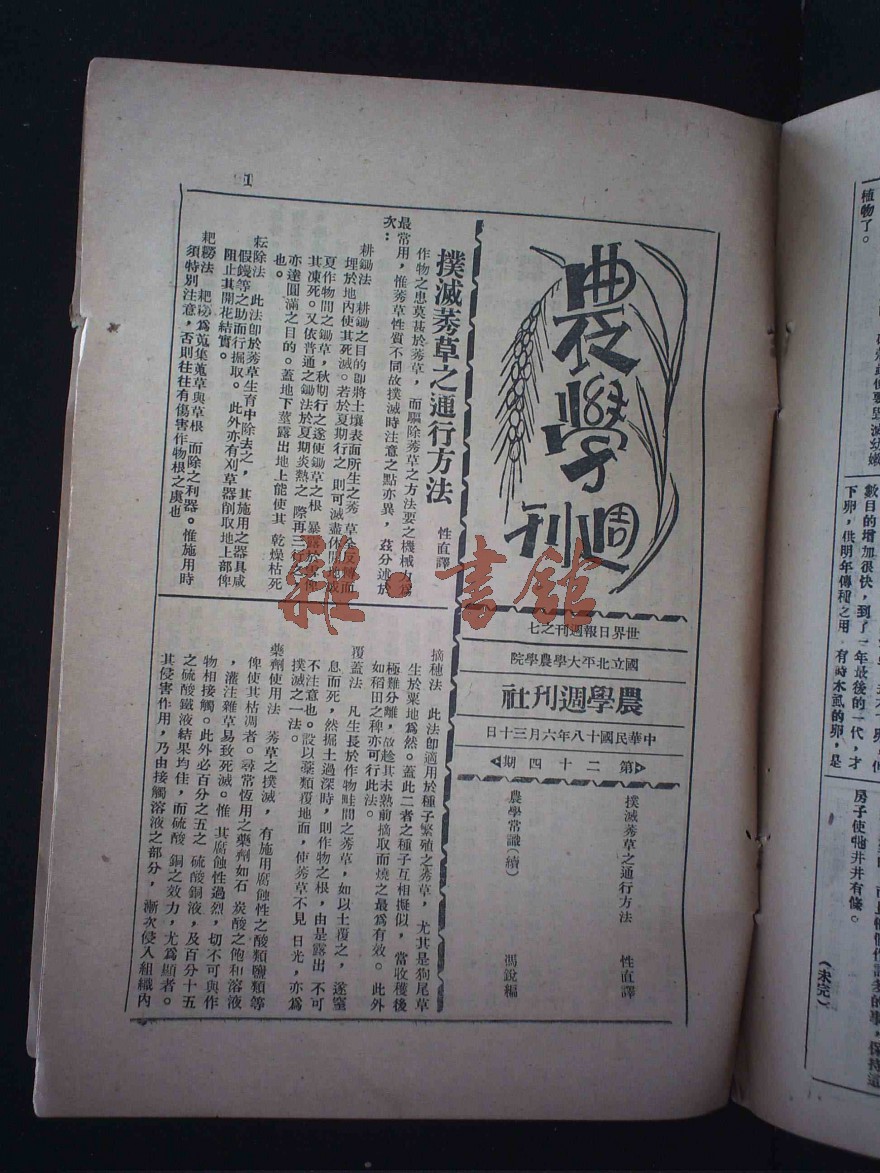 農學週刊
世界日報週刊之七
國立北平大學農學院
農學週刊社
中華民國十八年六月三十日
第二十四期
撲滅莠草之通行方法 性直譯
農學常識(續) 馮銳編
撲滅莠草之通行方法
性直譯
作物之患莫甚於莠草，而驅除莠草之方法要之機械力爲
最常用，惟莠草性質不同故撲滅時注意之點亦異，茲分述於
次：
耕鋤法 耕鋤之目的卽將土壤表面所生之莠草
埋於地內使其死滅。若於夏期行之則可滅盡
夏作物間之鋤草，秋期行之遂使鋤草之根 暴露於
其凍死。又依普通之鋤法於夏期炎熱之際再三行之，
亦達圓滿之目的。蓋地下莖露出地上能使其 乾燥枯死
也。
耘除法 此法卽於莠草生育中除去之，其施用之器具咸
假鏝等之助而行掘取。此外亦有刈草器削取地上部俾
阻止其開花結實。
耙䅭法 耙䅭爲蒐集蒐草與草根 而除之利器。惟施用時
須特別注意，否則往往有傷害作物根之虞也
摘穗法 此法卽適用於種子繁殖之莠草，尤其是狗尾草
生於粟地爲然。蓋此二者之種子互相擬似，當收穫後
極難分離，故趁其未熟前摘取而燒之最爲有效。此外
如稻田之稗亦可行此法。
覆蓋法 凡生長於作物畦間之莠草，如以土覆之，遂窒
息而死，然掘土過深時，則作物之根，由是露出 不可
不注意也。設以藁類覆地面，使莠草不見 日光，亦爲
撲滅之一法。
藥劑使用法 莠草之撲滅，有施用腐蝕性之酸類鹽類等
俾使其枯凋者。尋常恆用之藥劑如石炭酸之飽和溶液
，灌注雜草易致死滅。惟 其腐蝕性過烈，切不可與作
物相接觸。此外必百分之五之 硫酸銅液，及百分十五
之硫酸鐵液結果均佳，而硫酸 銅之效力，尤爲顯者。
其侵害作用，乃由接觸溶液之部分，漸次侵入組織內
1
植物了。
數目的增加很快，到了一年最後的一代，才
下卵，供明年傳種之用 有時木虱的卵，是
房子使牠井井有條。
（未完）
雜·書館